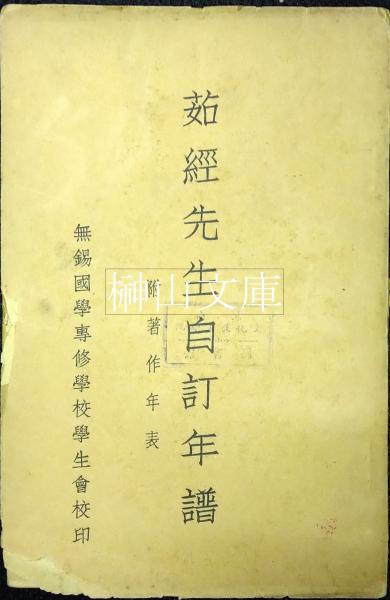 茹經先生自訂年譜
附著作年表
無錫國學專修學校學生會校印
榊山文庫